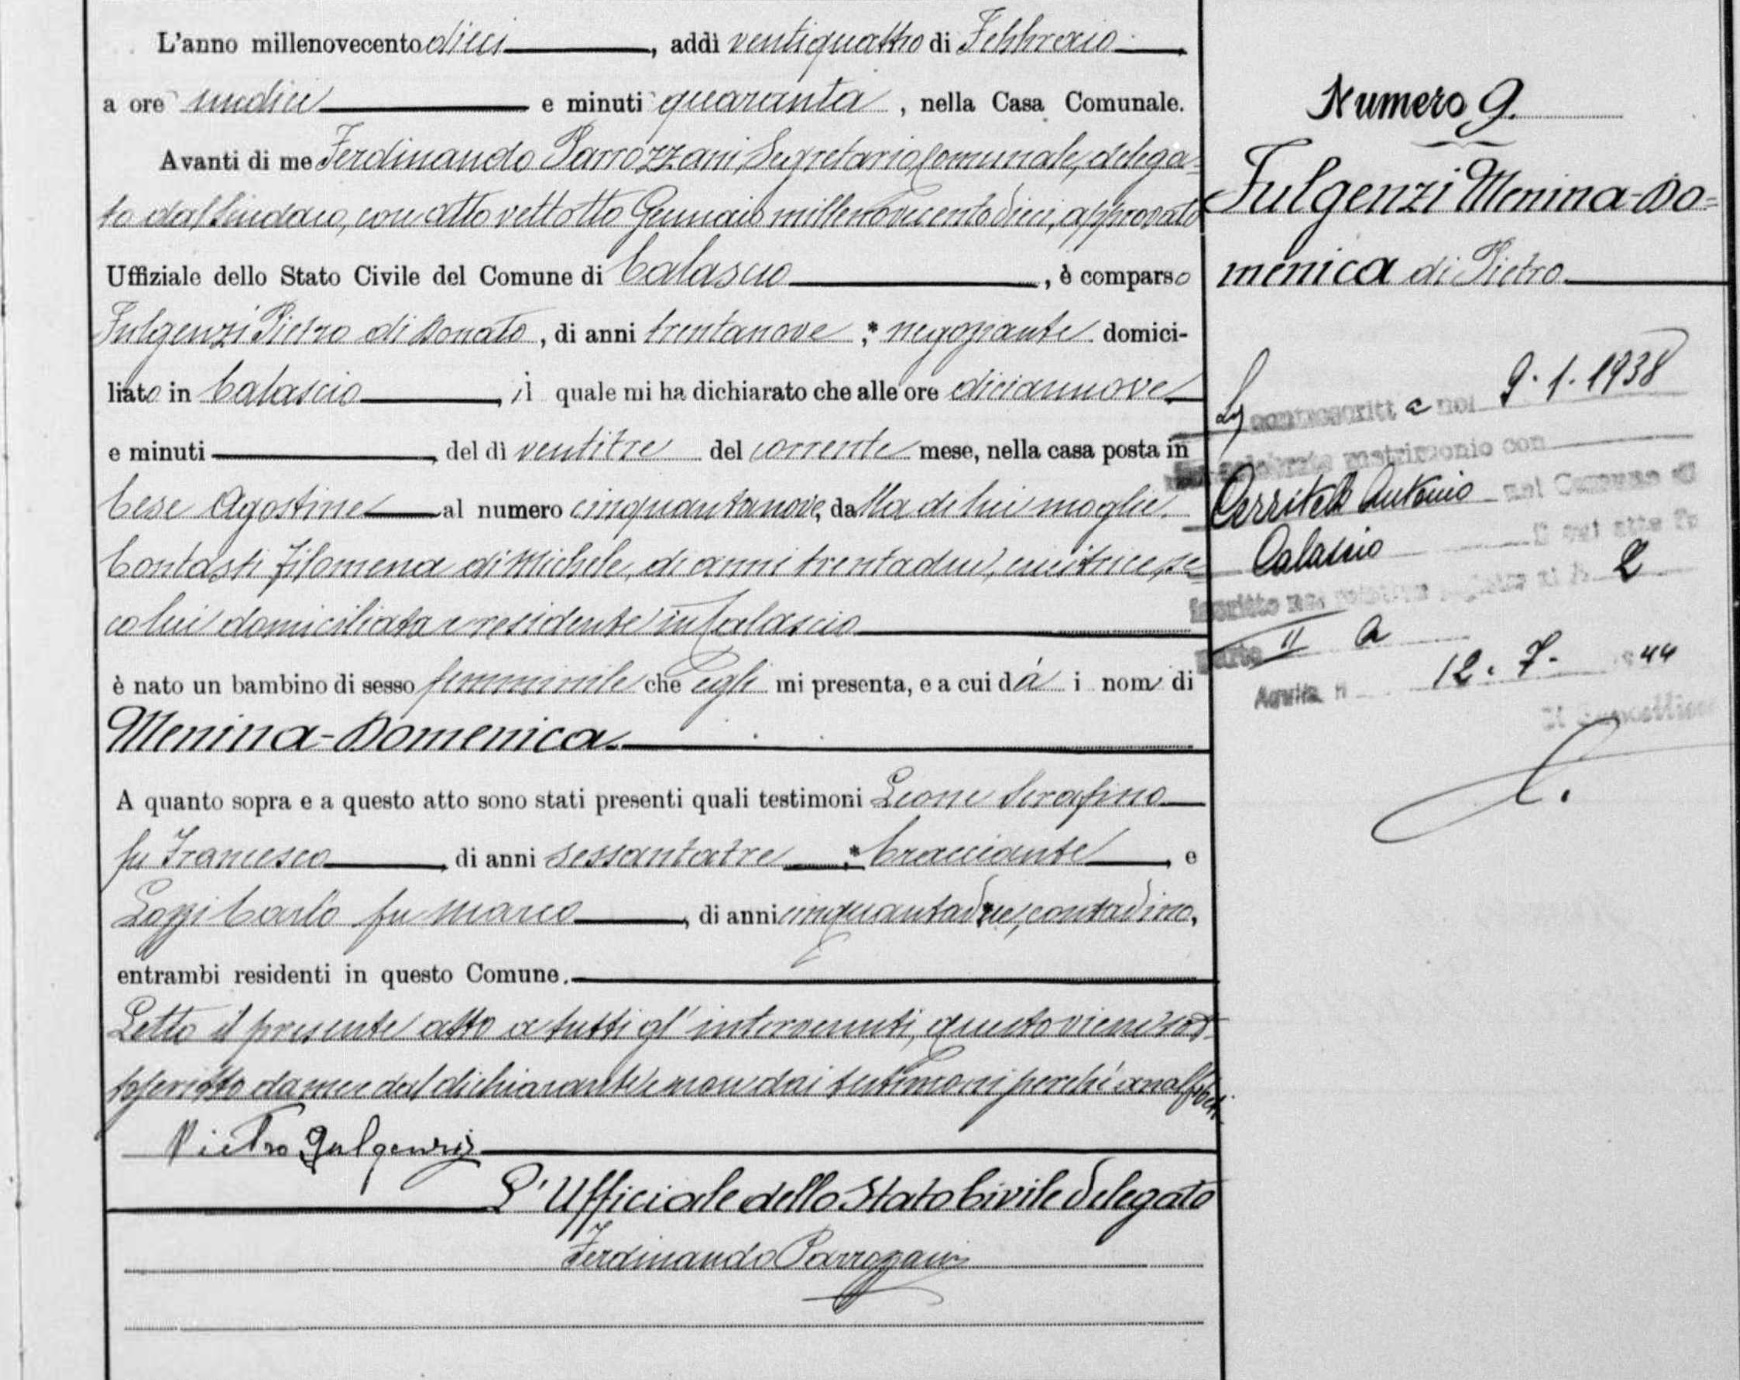 L'anno millenovecento dieci, addì ventiquattro di Febbraio
a ore undici e minuti quaranta, nella Casa Comunale.
Avanti di me Ferdinando Parrozzani, Segretario Comunale, delega=
to dal Sindaco, con atto Gennaio millenovecentodieci, approvato
Uffiziale dello Stato Civile del Comune di Calascio, è comparso
Fulgenzi Pietro di Donato, di anni trentanove, * negoziante domici-
liato in Calascio, il quale mi ha dichiarato che alle ore diciannove
e minuti, del dì ventitre del corrente mese, nella casa posta in
Cese Agostine al numero cinquantanove, dalla di lui moglie
Contasti Filomena di Michele, di anni trentadue, cucitrice, se
co lui domiciliata e residente in Calascio
è nato un bambino di sesso femminile che egli mi presenta, e a cui dà i nomi di
Menina-Domenica.
A quanto sopra e a questo atto sono stati presenti quali testimoni Leone Serafino
fu Francesco, di anni sessantatre, * bracciante, e
Lozzi Carlo fu Marco, di anni cinquantadue, contadino,
entrambi residenti in questo Comune.
Letto il presente atto a tutti gl'intervenuti, questo viene sot-
toscritto da me e dal dichiarante e non dai testimoni perché analfabeti.
Pietro Fulgenzi
L'Ufficiale dello Stato Civile Delegato
Ferdinando Parrozzani
Numero 9.
Fulgenzi Menina-Do=
menica di Pietro
La controscritta nel 9.1.1938
celebrato matrimonio con
Cerritelli Antonio nel Comune di
Calascio
inscritto nel registro al N. 2
parte II a
Aquila li 12.7.1944
Il Cancelliere